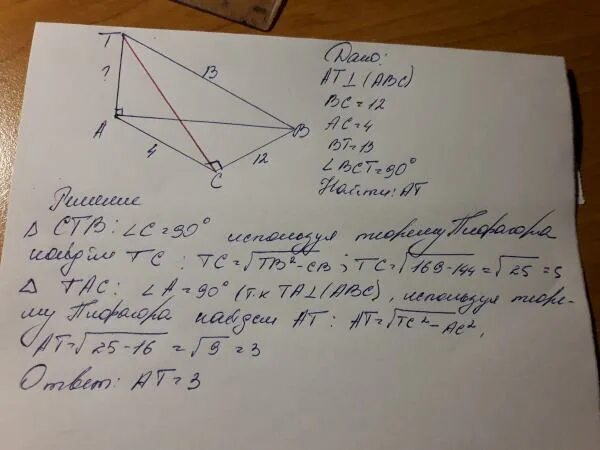 T
?
13
A
B
4
12
C
Дано:
AT⊥(ABC)
BC=12
AC=4
BT=13
∠BCT=90°
Найти: AT
Решение
Δ CTB: ∠C=90° используя теорему Пифагора
найдём TC: TC=√TB²-CB; TC=√169-144=√25=5
Δ TAC: ∠A=90° (т.к TA⊥(ABC), используя теоре-
му Пифагора найдем AT: AT=√TC²-AC²,
AT=√25-16=√9=3
Ответ: AT=3